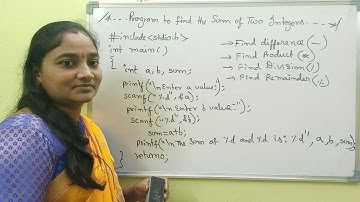 /*--- Program to find the Sum of Two Integers ---*/
#include<stdio.h>
int main()
{
int a, b, sum;
printf("\n Enter a value:");
scanf("%d", &a);
printf("\n Enter b value:");
scanf("%d", &b);
sum=a+b;
printf("\n The Sum of %d and %d is: %d", a, b, sum);
return 0;
}
→ Find difference (-)
→ Find Product (*)
→ Find Division (/)
→ Find Remainder (%)